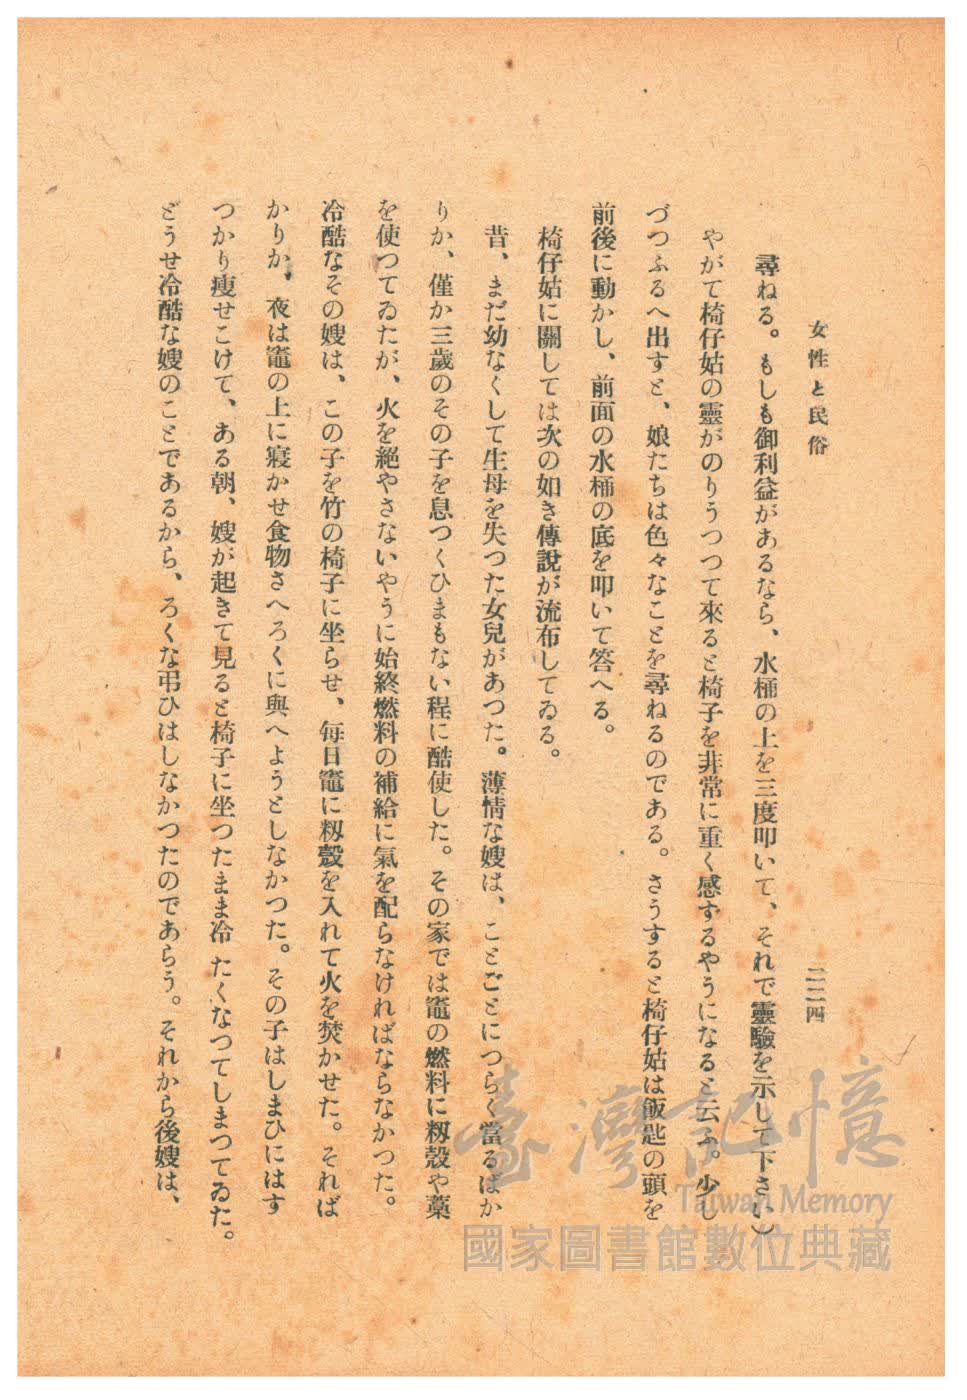 女性と民俗
二二四
尋ねる。もしも御利益があるなら、水桶の上を三度叩いて、それで靈驗を示して下さい）
やがて椅仔姑の靈がのりうつつて來ると椅子を非常に重く感ずるやうになると云ふ。少し
づつふるへ出すと、娘たちは色々なことを尋ねるのである。さうすると椅仔姑は飯匙の頭を
前後に動かし、前面の水桶の底を叩いて答へる。
椅仔姑に關しては次の如き傳說が流布してゐる。
昔、まだ幼なくして生母を失つた女兒があつた。薄情な嫂は、ことごとにつらく當るばか
りか、僅か三歲のその子を息つくひまもない程に酷使した。その家では竈の燃料に籾殼や藁
を使つてゐたが、火を絕やさないやうに始終燃料の補給に氣を配らなければならなかつた。
冷酷なその嫂は、この子を竹の椅子に坐らせ、每日竈に籾殼を入れて火を焚かせた。そればか
かりか、夜は竈の上に寢かせ食物さへろくに與へようとしなかつた。その子はしまひにはす
つかり瘦せこけて、ある朝、嫂が起きて見ると椅子に坐つたまま冷たくなつてしまつてゐた。
どうせ冷酷な嫂のことであるから、ろくな弔ひはしなかつたのであらう。それから後嫂は、
臺灣記憶
Taiwan Memory
國家圖書館數位典藏